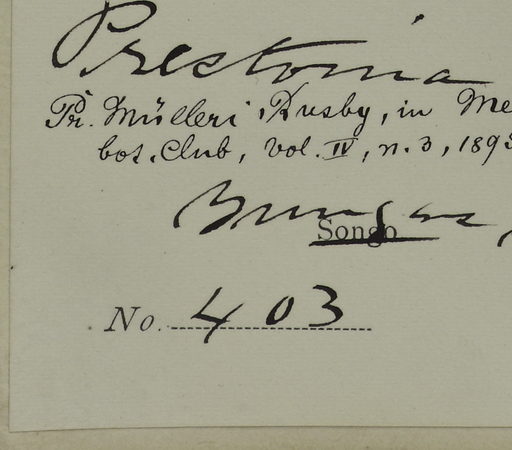 Prestonia
Pr. Mülleri Rusby, in Me
bot. Club, vol. IV, n. 3, 1895
Songo
No. 403